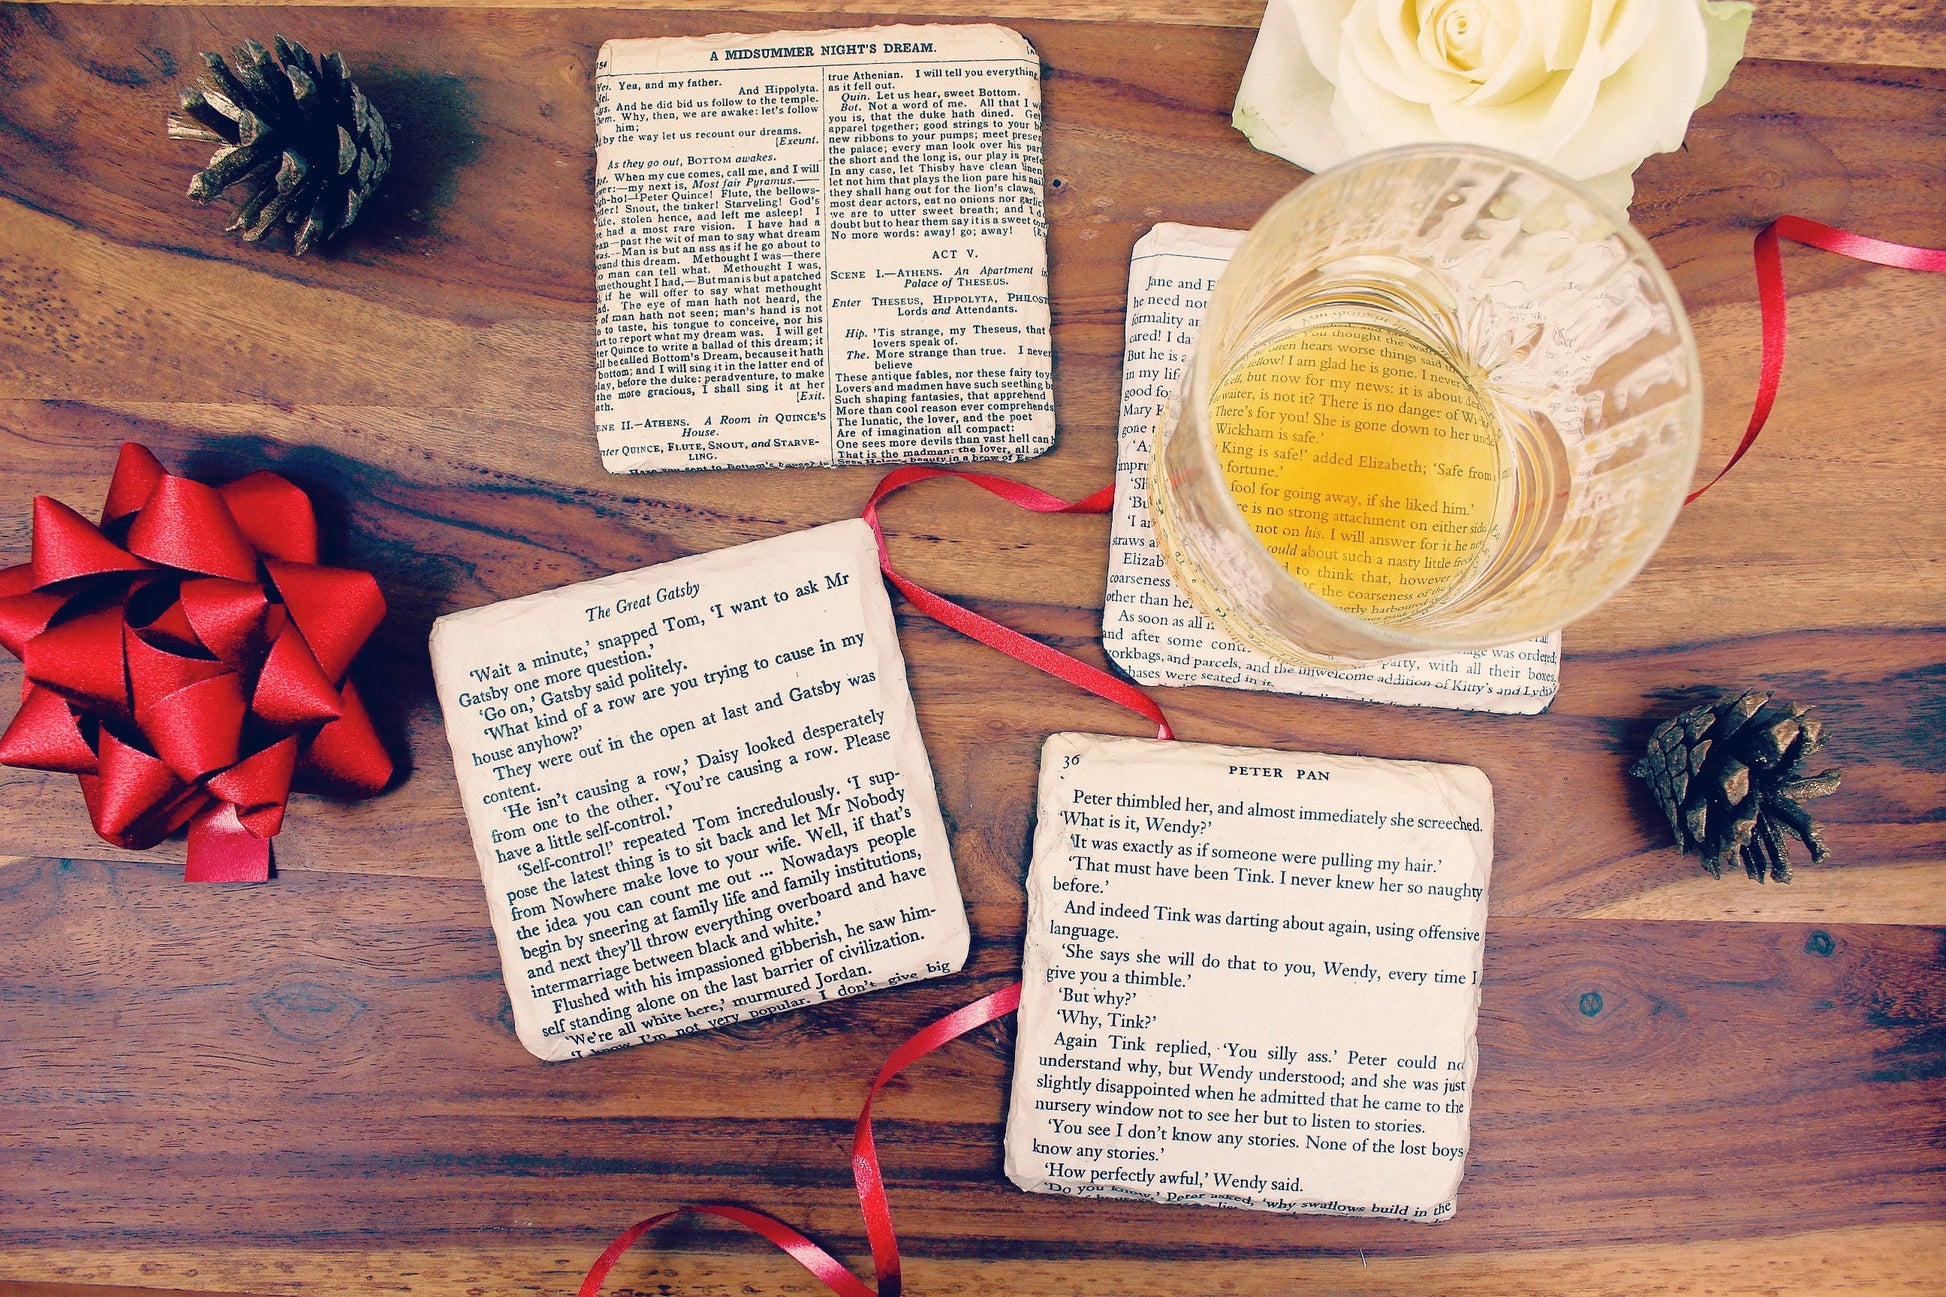 A MIDSUMMER NIGHT'S DREAM.
Yea, and my father.
And Hippolyta.
And he did bid us follow to the temple.
Why, then, we are awake: let's follow
him;
by the way let us recount our dreams.
[Exeunt.
As they go out, BOTTOM awakes.
When my cue comes, call me, and I will
my next is, Most fair Pyramus.—
Peter Quince! Flute, the bellows-
Snout, the tinker! Starveling! God's
stolen hence, and left me asleep! I
had a most rare vision. I have had a
—past the wit of man to say what dream
—Man is but an ass as if he go about to
this dream. Methought I was—there
man can tell what. Methought I was,
methought I had,—But man is but a patched
if he will offer to say what methought
The eye of man hath not heard, the
of man hath not seen; man's hand is not
to taste, his tongue to conceive, nor his
to report what my dream was. I will get
Quince to write a ballad of this dream; it
be called Bottom's Dream, because it hath
bottom; and I will sing it in the latter end of
before the duke: peradventure, to make
the more gracious, I shall sing it at her
[Exit.
II.—ATHENS. A Room in QUINCE'S
House.
QUINCE, FLUTE, SNOUT, and STARVE-
LING.
Have you sent to Bottom's house?
true Athenian. I will tell you everything,
as it fell out.
Quin. Let us hear, sweet Bottom.
Bot. Not a word of me. All that I
you is, that the duke hath dined.
apparel together; good strings to your
new ribbons to your pumps; meet
the palace; every man look over his
the short and the long is, our play is
In any case, let Thisby have clean linen
let not him that plays the lion pare his
they shall hang out for the lion's claws.
most dear actors, eat no onions nor
we are to utter sweet breath; and I
doubt but to hear them say it is a sweet
No more words: away! go; away!
ACT V.
SCENE I.—ATHENS. An Apartment in
Palace of THESEUS.
Enter THESEUS, HIPPOLYTA,
Lords and Attendants.
Hip. 'Tis strange, my Theseus, that
lovers speak of.
The. More strange than true. I never
believe
These antique fables, nor these fairy
Lovers and madmen have such seething
Such shaping fantasies, that apprehend
More than cool reason ever comprehends
The lunatic, the lover, and the poet
Are of imagination all compact:
One sees more devils than vast hell can
That is the madman: the lover, all as
Sees Helen's beauty in a brow of
Jane and
he need not
formality
cared! I
But he is a
in my life
good for
Mary
gone
Elizab
coarseness
other than
As soon as all
and after some
workbags, and parcels, and the unwelcome addition of Kitty's and
were seated in it.
was ordered;
party, with all their boxes,
You thought the
often hears worse things said
fellow! I am glad he is gone. I never
but now for my news: it is about
waiter, is not it? There is no danger of
There's for you! She is gone down to her
Wickham is safe.'
King is safe!' added Elizabeth; 'Safe from
fortune.'
fool for going away, if she liked him.'
is no strong attachment on either side,
not on his. I will answer for it he
could about such a nasty little
to think that, however
the coarseness of
harboured
The Great Gatsby
'Wait a minute,' snapped Tom, 'I want to ask Mr
Gatsby one more question.'
'Go on,' Gatsby said politely.
'What kind of a row are you trying to cause in my
house anyhow?'
They were out in the open at last and Gatsby was
content.
'He isn't causing a row,' Daisy looked desperately
from one to the other. 'You're causing a row. Please
have a little self-control.'
'Self-control!' repeated Tom incredulously. 'I sup-
pose the latest thing is to sit back and let Mr Nobody
from Nowhere make love to your wife. Well, if that's
the idea you can count me out ... Nowadays people
begin by sneering at family life and family institutions,
and next they'll throw everything overboard and have
intermarriage between black and white.'
Flushed with his impassioned gibberish, he saw him-
self standing alone on the last barrier of civilization.
'We're all white here,' murmured Jordan.
'I know I'm not very popular. I don't give big
36
PETER PAN
Peter thimbled her, and almost immediately she screeched.
'What is it, Wendy?'
'It was exactly as if someone were pulling my hair.'
'That must have been Tink. I never knew her so naughty
before.'
And indeed Tink was darting about again, using offensive
language.
'She says she will do that to you, Wendy, every time I
give you a thimble.'
'But why?'
'Why, Tink?'
Again Tink replied, 'You silly ass.' Peter could
understand why, but Wendy understood; and she was just
slightly disappointed when he admitted that he came to the
nursery window not to see her but to listen to stories.
'You see I don't know any stories. None of the lost boys
know any stories.'
'How perfectly awful,' Wendy said.
'Do you know,' Peter asked, 'why swallows build in the